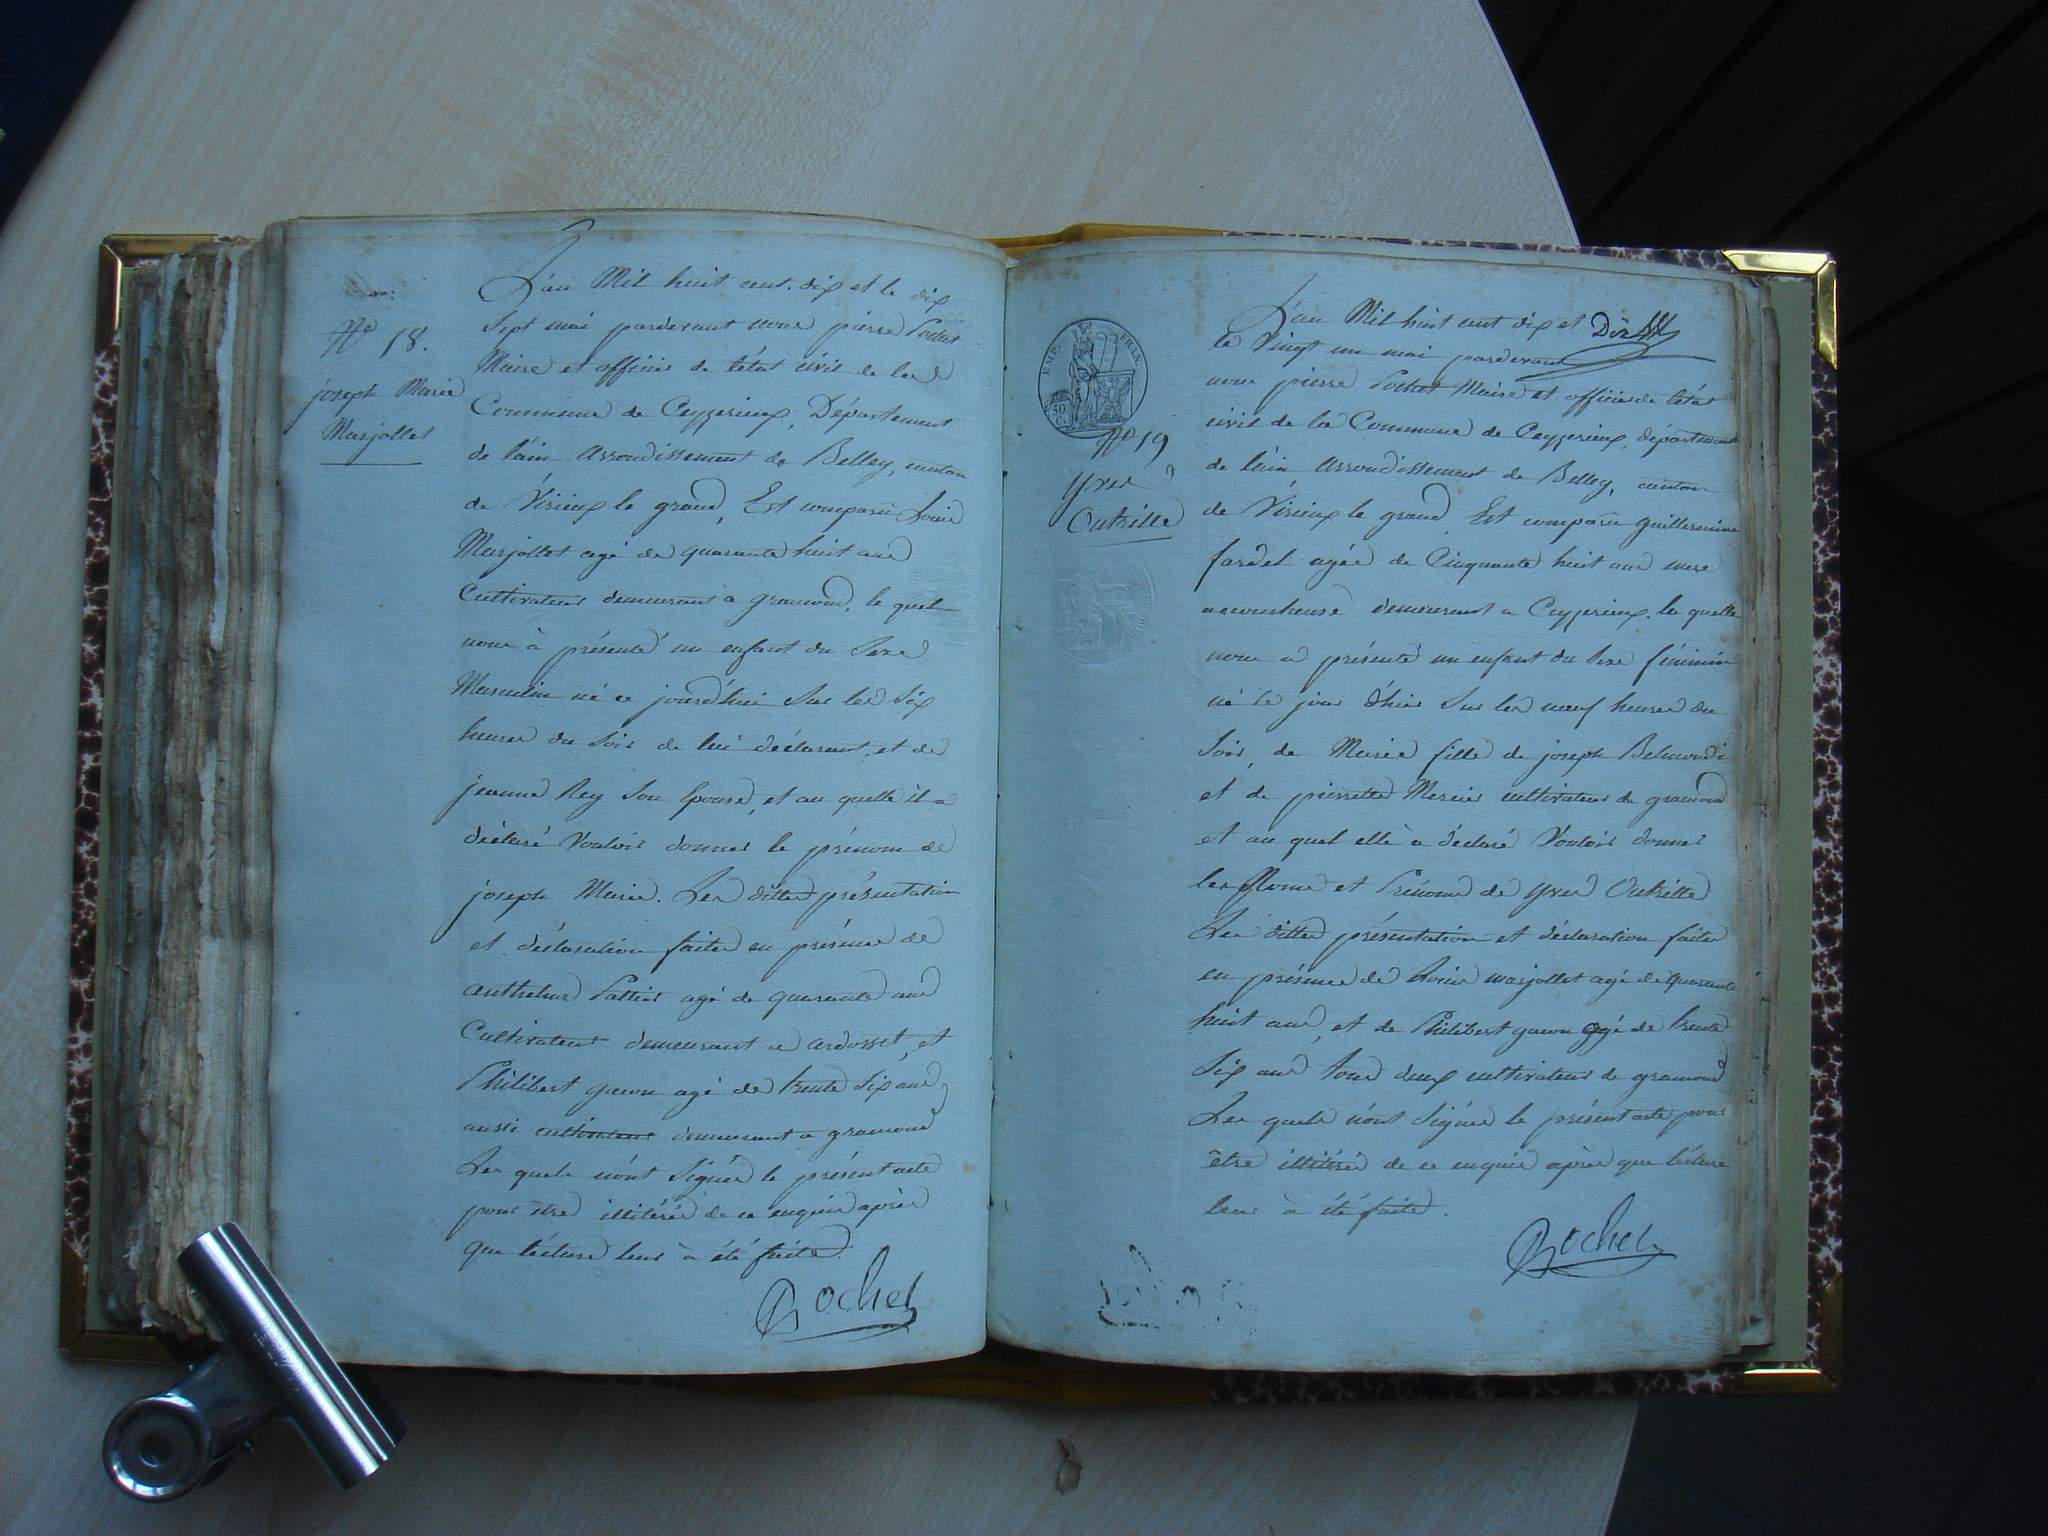 N° 18.
joseph Marie
Marjollet
L'an Mil huit cent. dix et le dix
Sept mai pardevant nous pierre Pochet
Maire et officier de l'état civil de la
Commune de Ceyzerieux, Département
de l'ain arrondissement de Belley, canton
de Virieux le grand, Est comparu Louis
Marjollet agé de quarante huit ans
Cultivateur demeurant à gramond, le quel
nous à présenté un enfant du Sexe
Masculin né ce jourd'hui Sur les Six
heures du Soir de lui déclarant et de
jeanne Rey Son Epouse, et au quelle il a
déclaré Vouloir donner le prénom de
joseph Marie. Les dittes présentation
et déclaration faites en présence de
anthelme Pattier agé de quarante ans
Cultivateur demeurant a ardosset, et
Philibert gacon agé de trente Six ans
aussi cultivateur demeurant a gramond
Les quels n'ont Signés le présent acte
pour être illitérés de ce enquis après
que lécture leur à été faite.
Pochet
EMP. FRAN.
50 C.
N° 19
yves
Outrille
L'an Mil huit cent dix et
le Vingt un mai pardevant
nous pierre Pochet Maire et officier de l'état
civil de la Commune de Ceyzerieux, département
de l'ain arrondissement de Belley, canton
de Virieux le grand, Est comparüe guillermine
fardel agée de Cinquante huit ans mere
accoucheuse demeurant a Ceyzerieux. la quelle
nous a présenté un enfant du Sexe féminin
né le jour d'hier Sur les neuf heures du
Soir, de Marie fille de joseph Belmondi
et de pierrette Mercier cultivateurs de gramond
et au quel elle à déclaré Vouloir donner
les Noms et Prénoms de yves Outrille
Les dittes présentation et déclaration faites
en présence de Louis marjollet agé de quarante
huit ans, et de Philibert gacon agé de trente
Six ans tous deux cultivateurs de gramond
Les quels n'ont Signés le présent acte pour
être illitérés de ce enquis après que lécture
leur à été faite.
Pochet